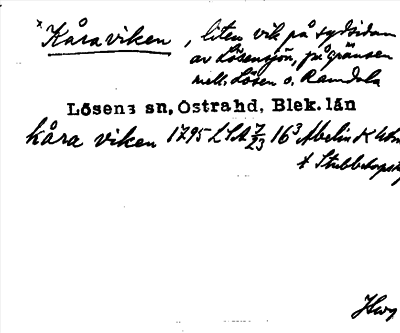 Kåraviken, liten vik på sydsidan
av Lösensjön, på gränsen
mell. Lösen o. Ramdala
Lösens sn, Östrahd, Blek. län
Kåra viken 1795 LSA 7/23 16³ Abelin K
t Stubbetorp